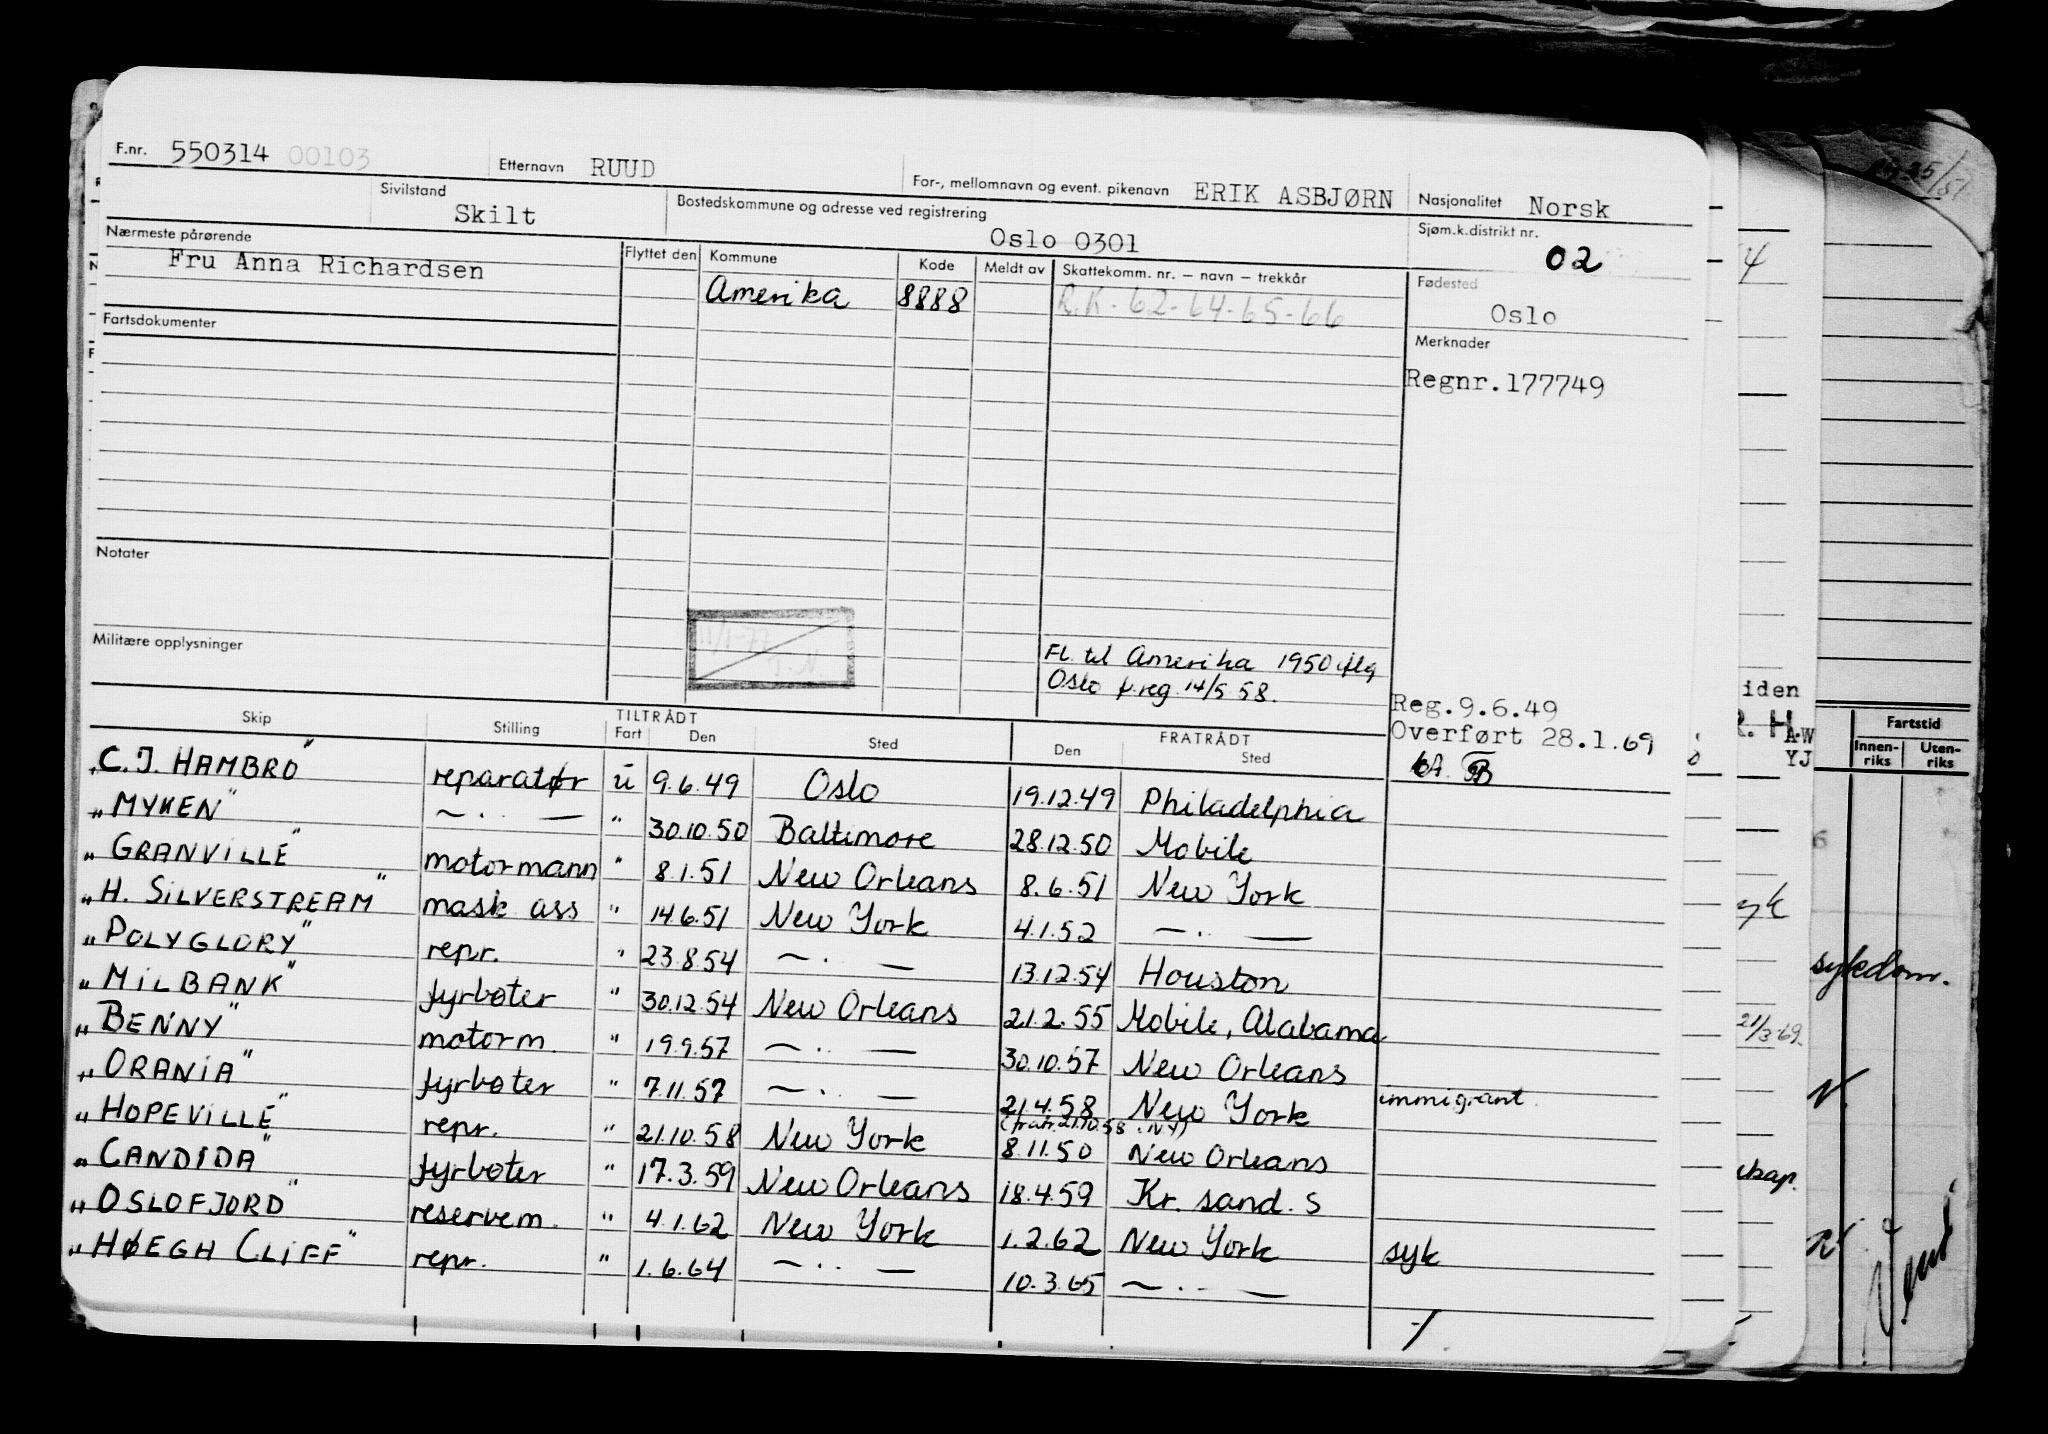 F.nr. 550314 00103 Etternavn RUUD For-, mellomnavn og event. pikenavn ERIK ASBJØRN Nasjonalitet Norsk
Sivilstand Skilt Bostedskommune og adresse ved registrering Oslo 0301 Sjøm.k.distrikt nr. 02
Nærmeste pårørende Fru Anna Richardsen Flyttet den Kommune Kode Meldt av Skattekomm. nr. — navn — trekkår Fødested Oslo
Amerika 8888 R.K. - 62-64-65-66
Fartsdokumenter
Merknader
Regnr.177749
Notater
11/1-77
Militære opplysninger
Fl. til Amerika 1950 iflg
Oslo f.reg. 14/5 58.
Reg.9.6.49
Overført 28.1.69
Skip Stilling TILTRÅDT Fart Den Sted FRATRÅDT Den Sted
"C.J. HAMBRO" reparatør u 9.6.49 Oslo 19.12.49 Philadelphia
"MYKEN" —..— " 30.10.50 Baltimore 28.12.50 Mobile
"GRANVILLE" motormann " 8.1.51 New Orleans 8.6.51 New York
"H. SILVERSTREAM" mask ass " 14.6.51 New York 4.1.52 —..—
"POLYGLORY" repr. " 23.8.54 —..— 13.12.54 Houston
"MILBANK" fyrbøter " 30.12.54 New Orleans 21.2.55 Mobile, Alabama
"BENNY" motorm. " 19.9.57 —..— 30.10.57 New Orleans
"ORANIA" fyrbøter " 7.11.57 —..— 21.4.58 New York immigrant
(fratr. 21.10.58 i NY)
"HOPEVILLE" repr. " 21.10.58 New York 8.11.50 New Orleans
"CANDIDA" fyrbøter " 17.3.59 New Orleans 18.4.59 Kr. sand. S
"OSLOFJORD" reservem. " 4.1.62 New York 1.2.62 New York syk
"HØEGH CLIFF" repr. " 1.6.64 —..— 10.3.65 —..—
iden
Fartstid
Innen-riks Uten-riks
A-W
YJ
sykdom.
21/3-69.